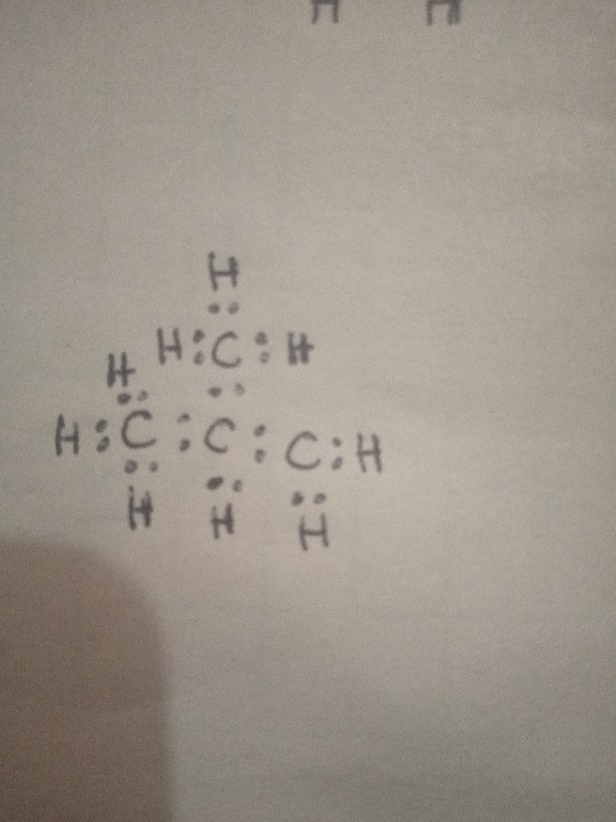 H H
H
H:C:H
H
H:C:C:C:H
H H H